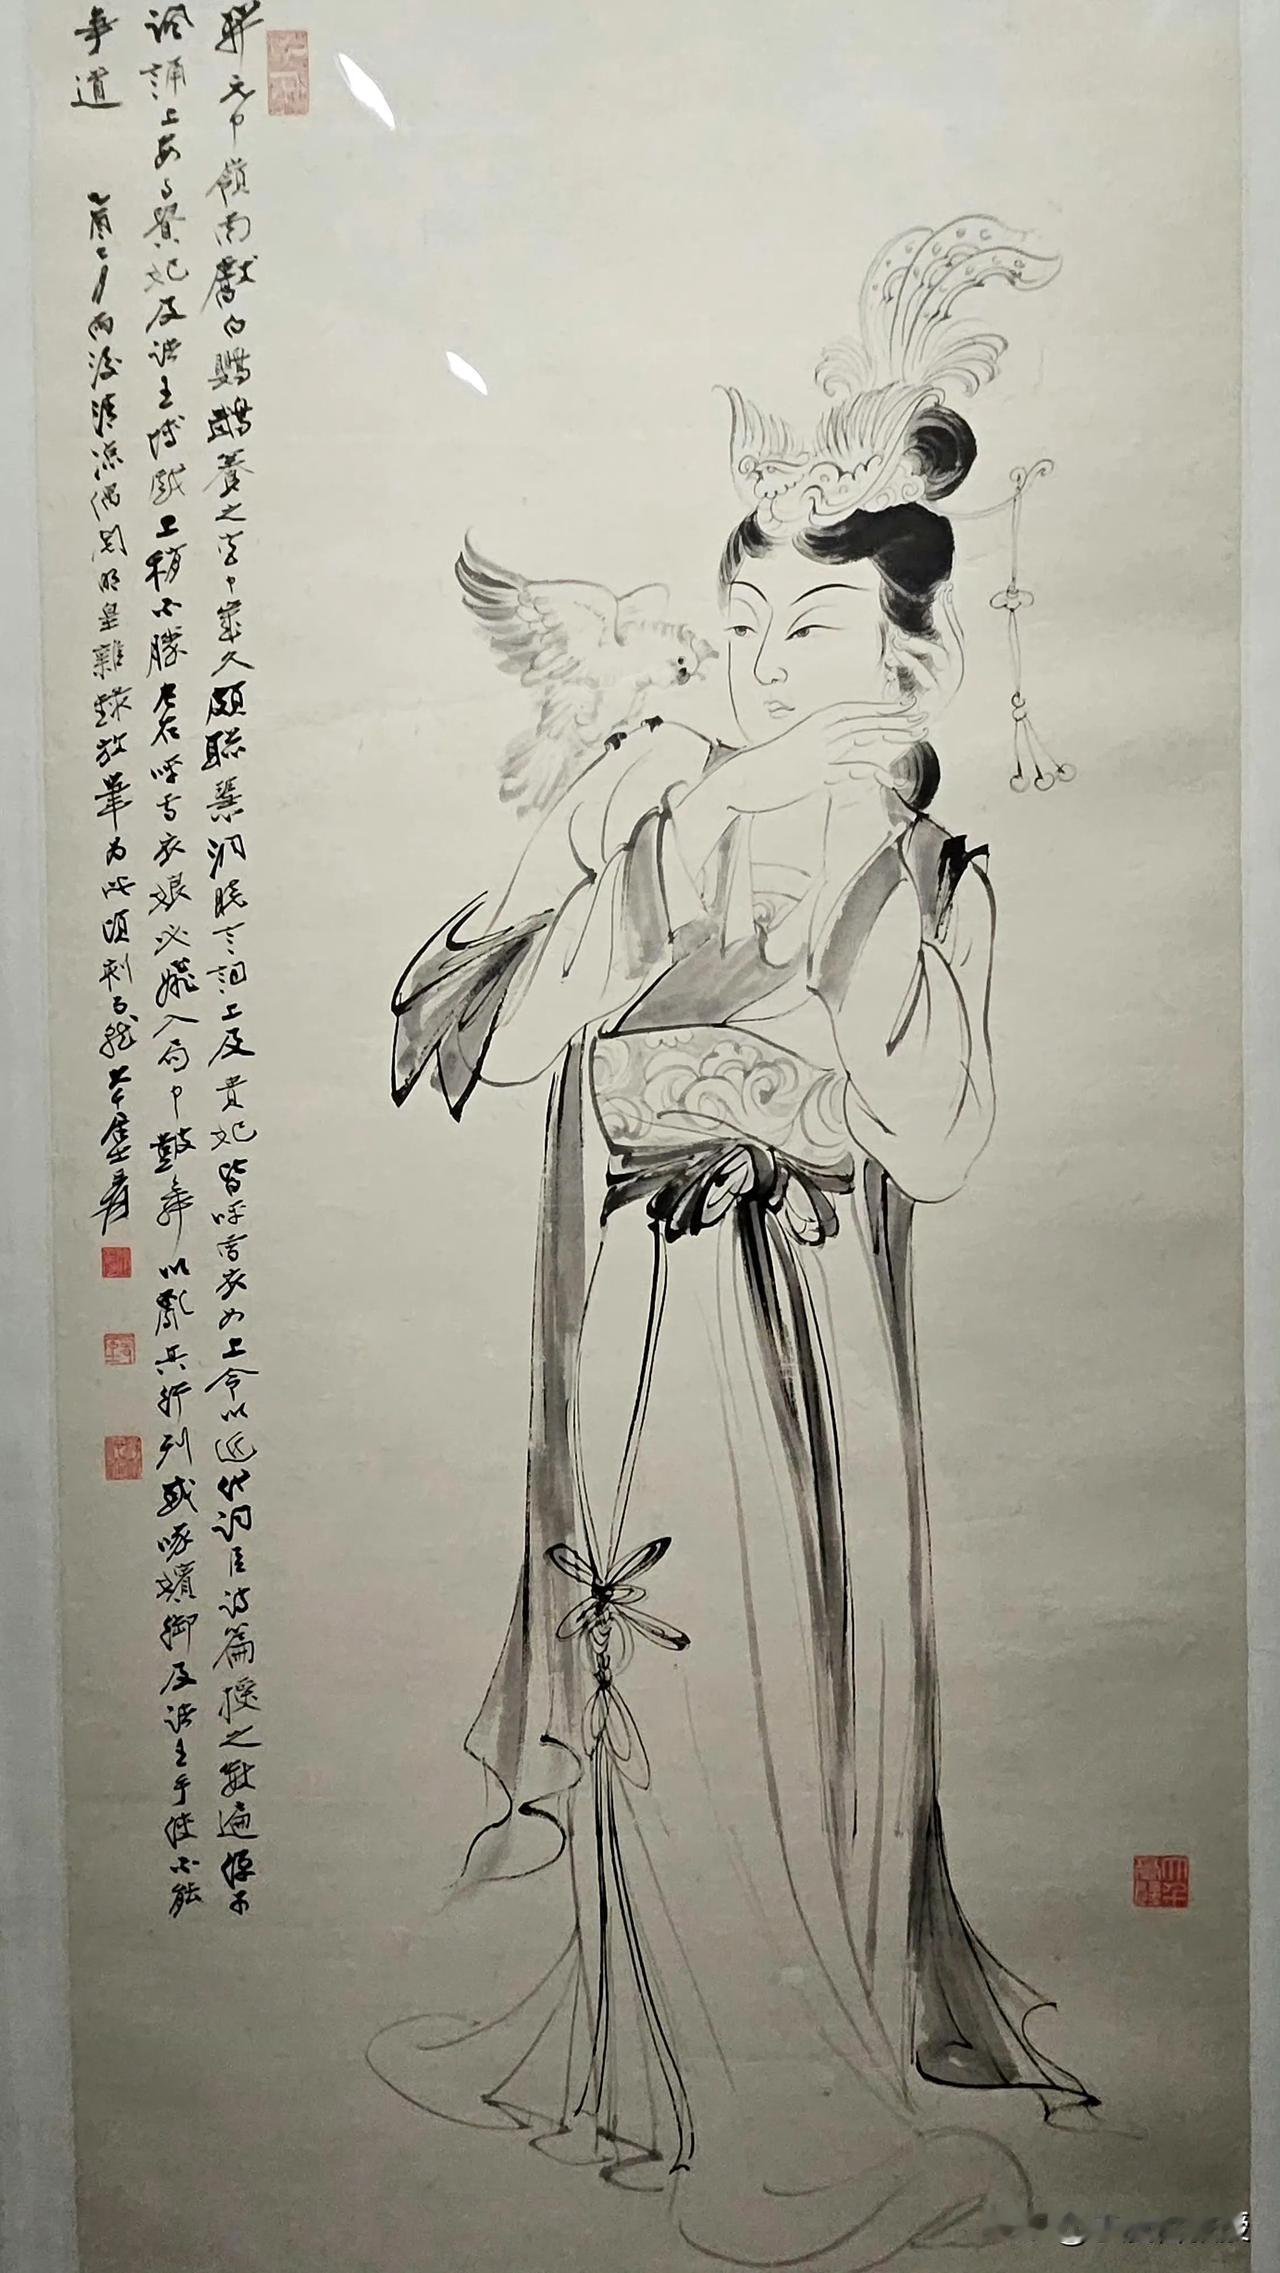 開元中嶺南獻白鸚鵡養之宮中歲久頗聰慧洞曉言詞上及貴妃皆呼雪衣女上令以近代詞臣詩篇授之數遍便可
諷誦上每與貴妃及諸王博戲上稍不勝左右呼雪衣娘必飛入局中鼓舞以亂其行列或啄嬪御及諸王手使不能
爭道
乙酉七月雨後清涼偶閱明皇雜錄放筆為此頃刻而就 大千居士爰